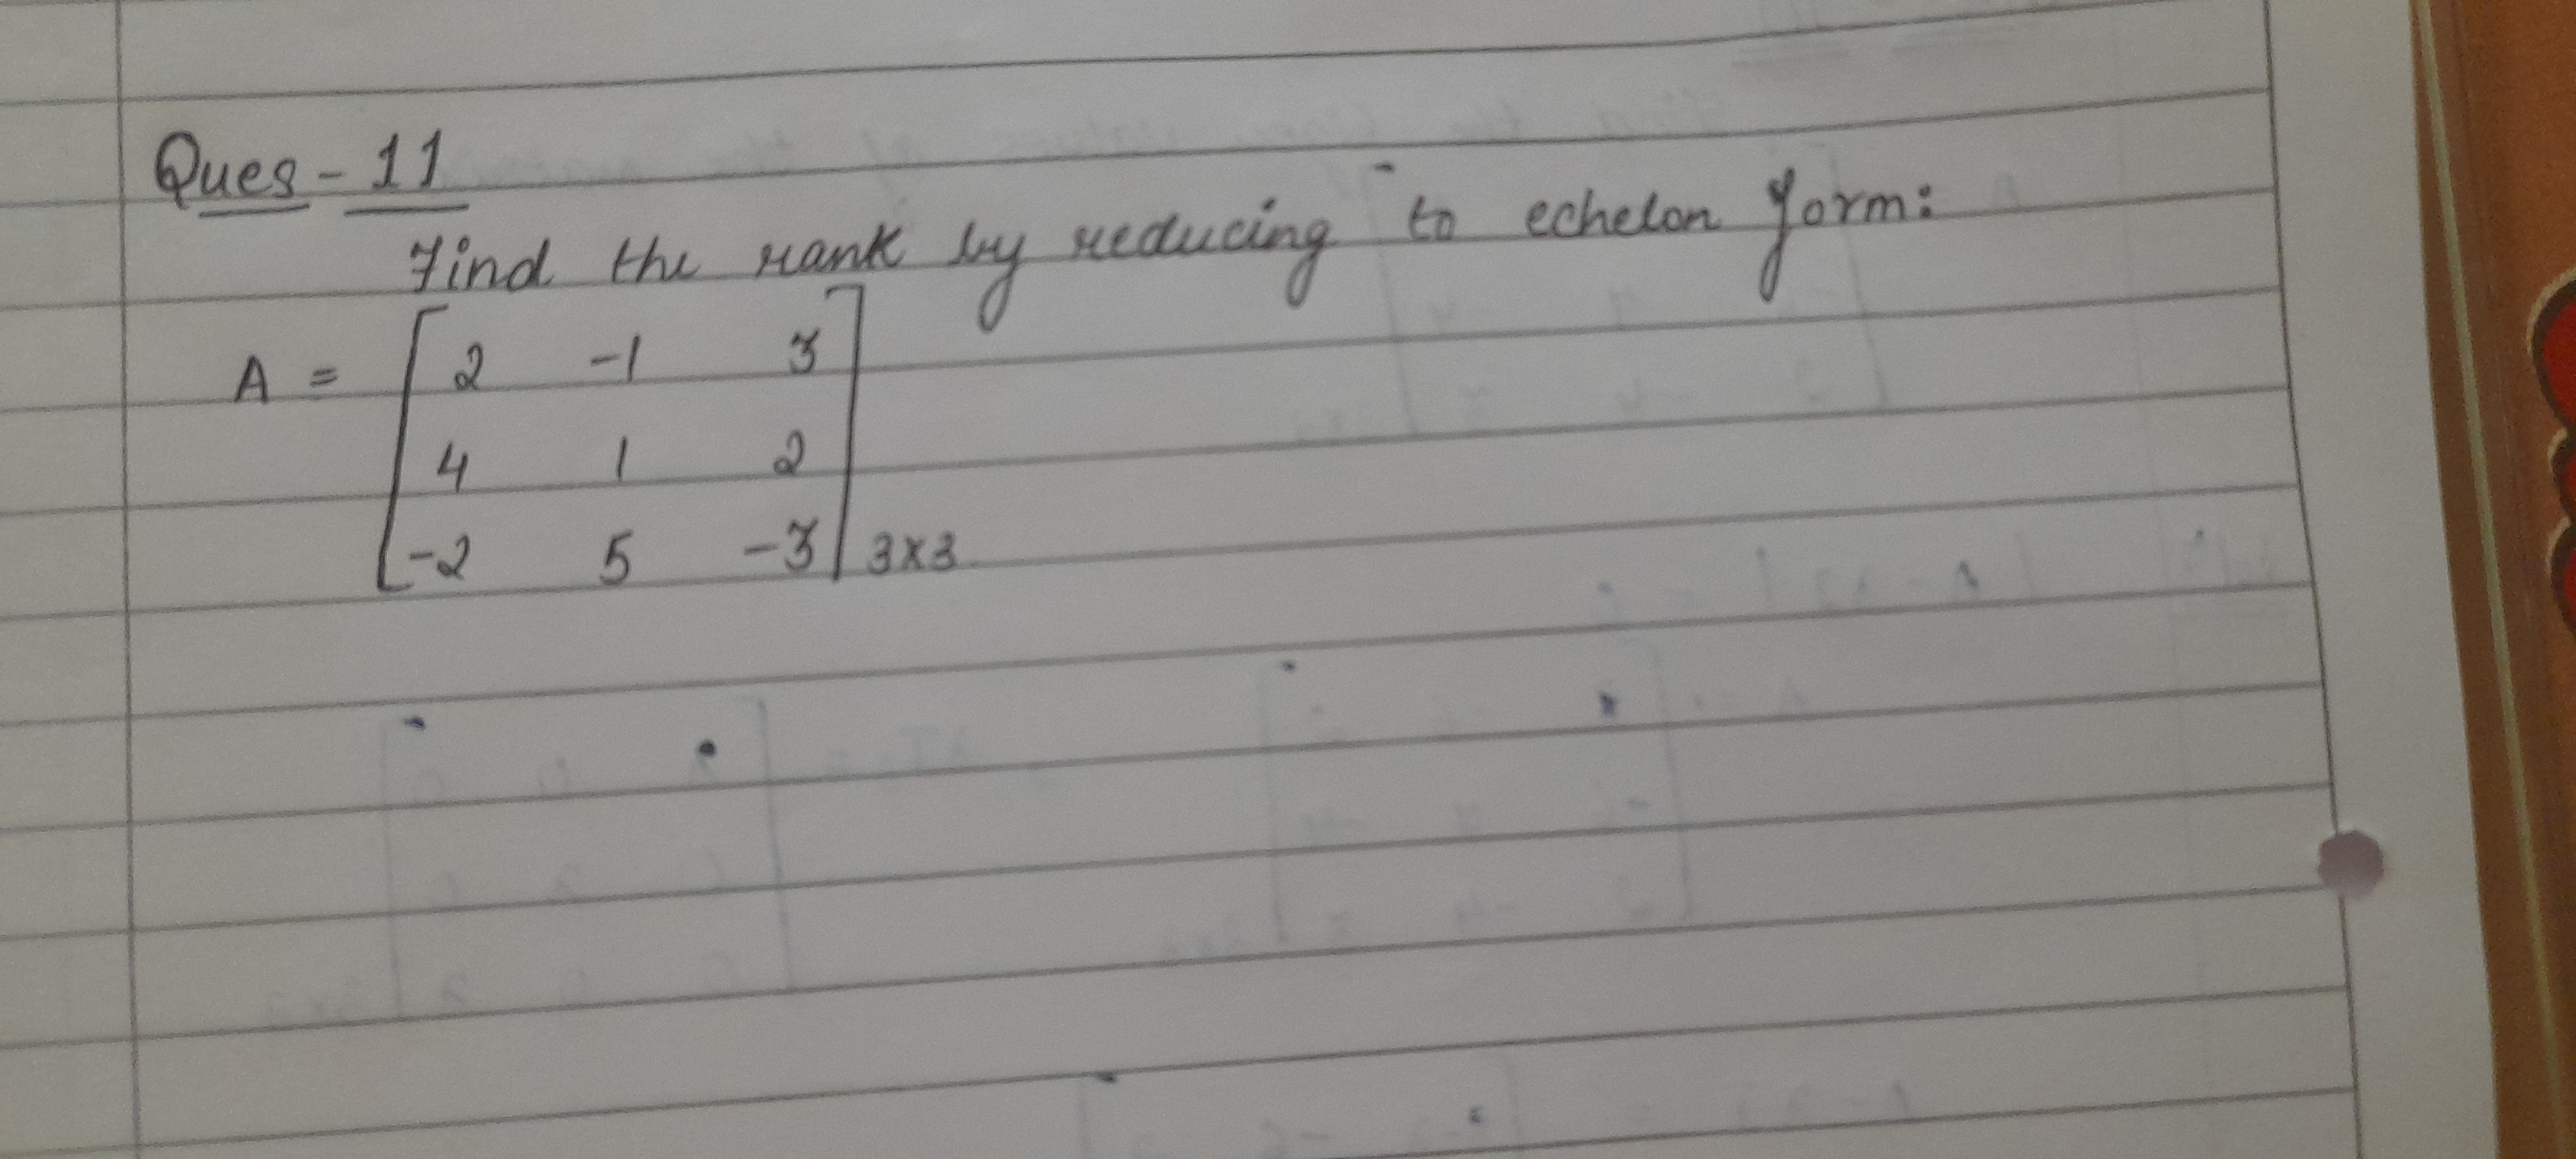 Ques - 11
Find the rank by reducing to echelon form:
A = [ 2 -1 3
4 1 2
-2 5 -3 ] 3x3